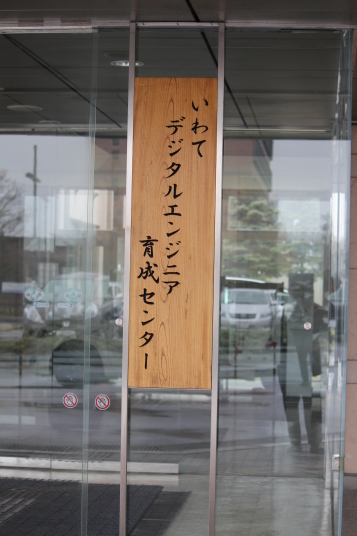 いわて
デジタルエンジニア
育成センター